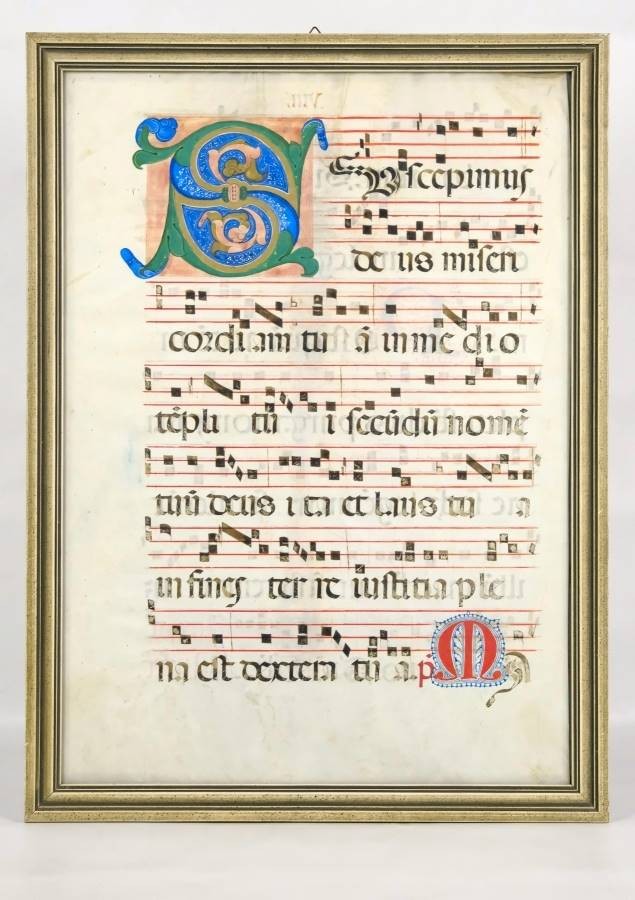 VIII.
SUscepimus
deus miseri
cordiam tu ā in me di o
tēpli tu i secūdū nomē
tuū deus i ta et laus tu a
in fines ter re iustitia ple
na est dextera tu a. p̃ M a